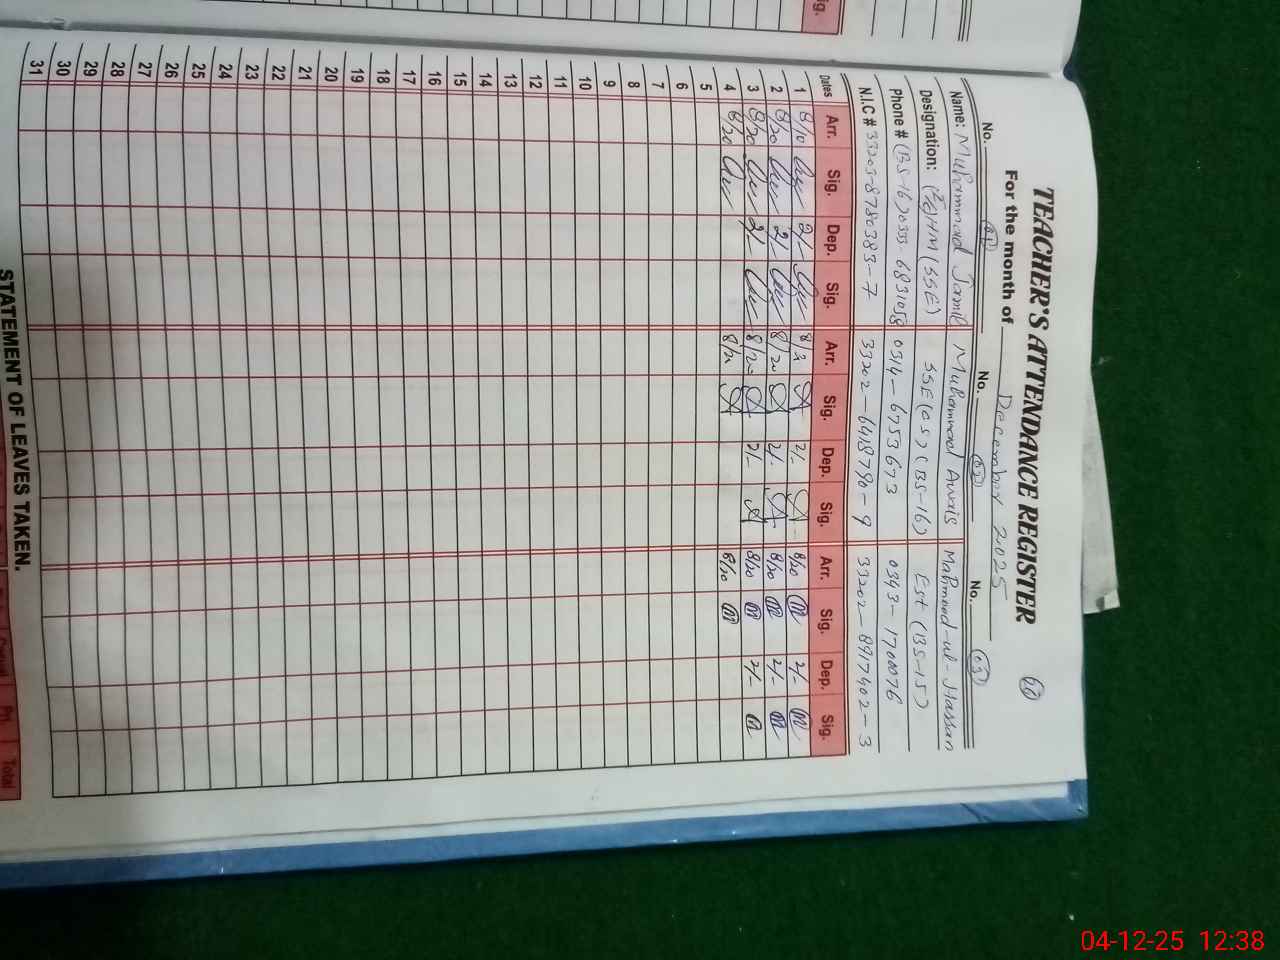 TEACHER'S ATTENDANCE REGISTER
For the month of December 2025
No. 01 No. 02 No. 03
Name: Muhammad Jamil Muhammad Awais Mahmood-ul-Hassan
Designation: HM (SSE) SSE(CS) (BS-16) Est (BS-15)
Phone # (BS-16) 0333-6831058 0314-6753673 0343-1700076
N.I.C # 33203-8780383-7 33202-6418790-9 33202-8917402-3
Dates Arr. Sig. Dep. Sig. Arr. Sig. Dep. Sig. Arr. Sig. Dep. Sig.
1 8/10 2/- 8/2 2/- 8/20 m 2/- m
2 8/20 2/- 8/20 2/- 8/20 m 2/- m
3 8/20 2/- 8/20 2/- 8/20 m 2/- m
4 8/20 8/2 8/20 m
5
6
7
8
9
10
11
12
13
14
15
16
17
18
19
20
21
22
23
24
25
26
27
28
29
30
31
STATEMENT OF LEAVES TAKEN.
Total
04-12-25 12:38